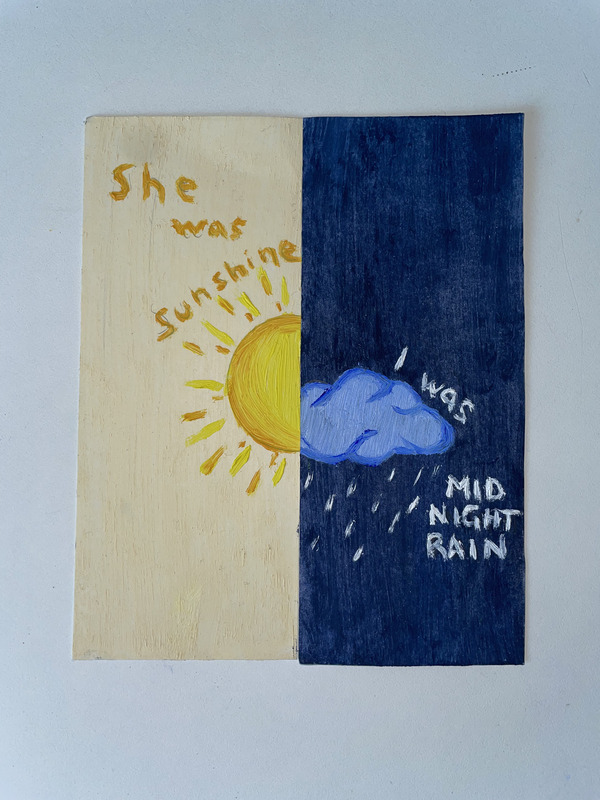 She
was
sunshine
I was
MID
NIGHT
RAIN